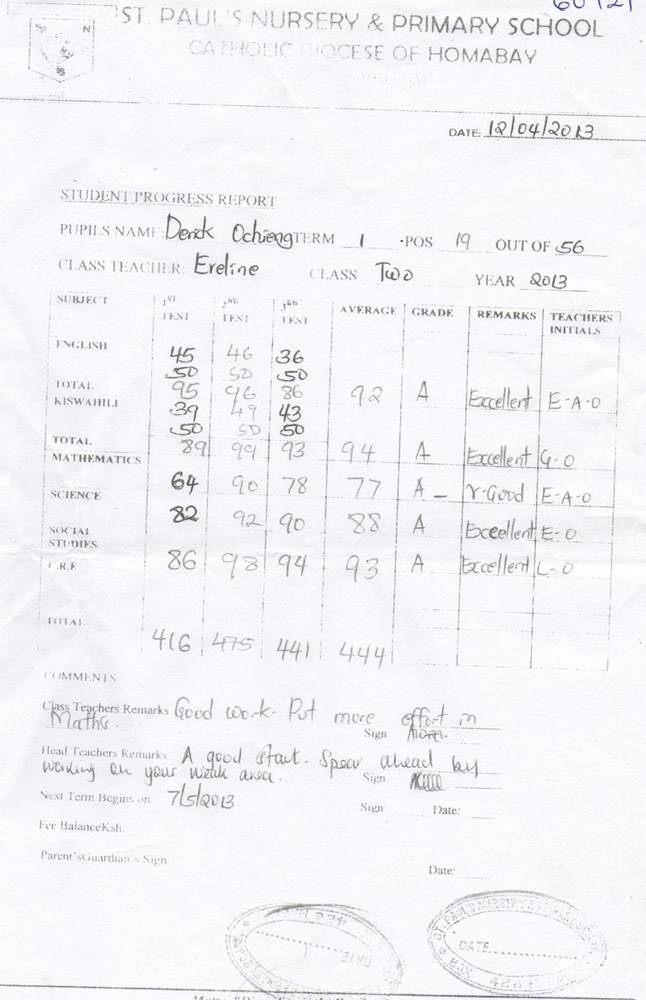 ST. PAUL'S NURSERY & PRIMARY SCHOOL
CATHOLIC DIOCESE OF HOMABAY
DATE: 12/04/2013
STUDENT PROGRESS REPORT
PUPILS NAME: Derick Ochieng TERM 1 POS 19 OUT OF 56
CLASS TEACHER: Ereline CLASS Two YEAR 2013
SUBJECT 1st TEST 2nd TEST 3rd TEST AVERAGE GRADE REMARKS TEACHERS INITIALS
ENGLISH 45 46 36
50 50 50
TOTAL 95 96 86 92 A Excellent E-A-O
KISWAHILI 39 49 43
50 50 50
TOTAL 89 99 93 94 A Excellent G-O
MATHEMATICS 64 90 78 77 A- V-Good E-A-O
SCIENCE 82 92 90 88 A Excellent E-O
SOCIAL STUDIES
C.R.E 86 98 94 93 A Excellent L-O
TOTAL 416 475 441 444
COMMENTS
Class Teachers Remarks Good work. Put more effort in
Maths. Sign
Head Teachers Remarks A good start. Spear ahead by
working on your weak area. Sign
Next Term Begins on 7/5/2013 Sign Date:
Fee BalanceKsh.
Parent'sGuardian's Sign. Date:
DATE